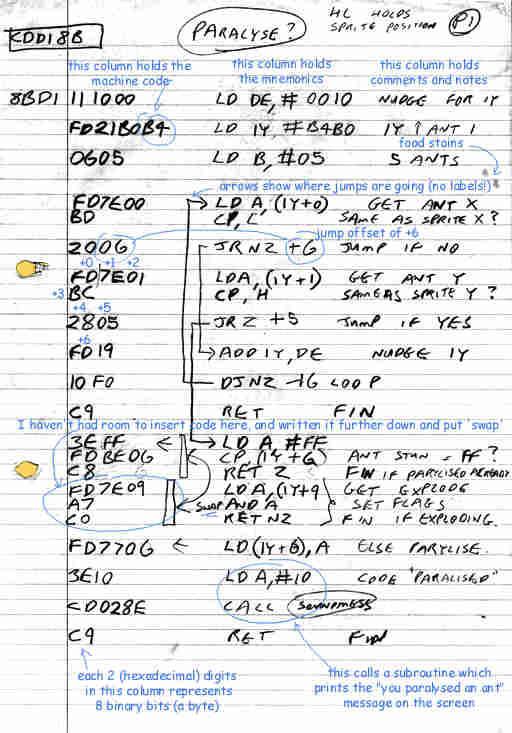 CDD18B PARALYSE? HL HOLDS SPRITE POSITION P1
this column holds the machine code this column holds the mnemonics this column holds comments and notes
8BD1 111000 LD DE, #0010 NUDGE FOR IY
FD21B0B4 LD IY, #B4B0 IY ↑ ANT 1
food stains
0605 LD B, #05 5 ANTS
arrows show where jumps are going (no labels!)
FD7E00 LD A, (IY+0) GET ANT X
BD CP, L SAME AS SPRITE X?
jump offset of +6
2006 JR NZ +6 JUMP IF NO
+0 +1 +2
FD7E01 LDA, (IY+1) GET ANT Y
+3 BC CP, H SAME AS SPRITE Y?
+4 +5
2805 JR Z +5 JUMP IF YES
+6
FD19 ADD IY, DE NUDGE IY
10 F0 DJNZ -16 LOOP
C9 RET FIN
I haven't had room to insert code here, and written it further down and put 'swap'
3EFF ← LD A, #FF
FDBE06 CP, (IY+6) ANT STUN = FF?
C8 RET Z FIN IF PARALISED ALREADY
FD7E09 LDA, (IY+9 GET EXPLODE
A7 ← SWAP AND A SET FLAGS
C0 RET NZ FIN IF EXPLODING.
FD7706 ← LD (IY+6), A ELSE PARYLISE.
3E10 LD A, #10 CODE "PARALISED"
CD028E CALL SOUNDMESS
C9 RET FIN
each 2 (hexadecimal) digits in this column represents 8 binary bits (a byte)
this calls a subroutine which prints the "you paralysed an ant" message on the screen